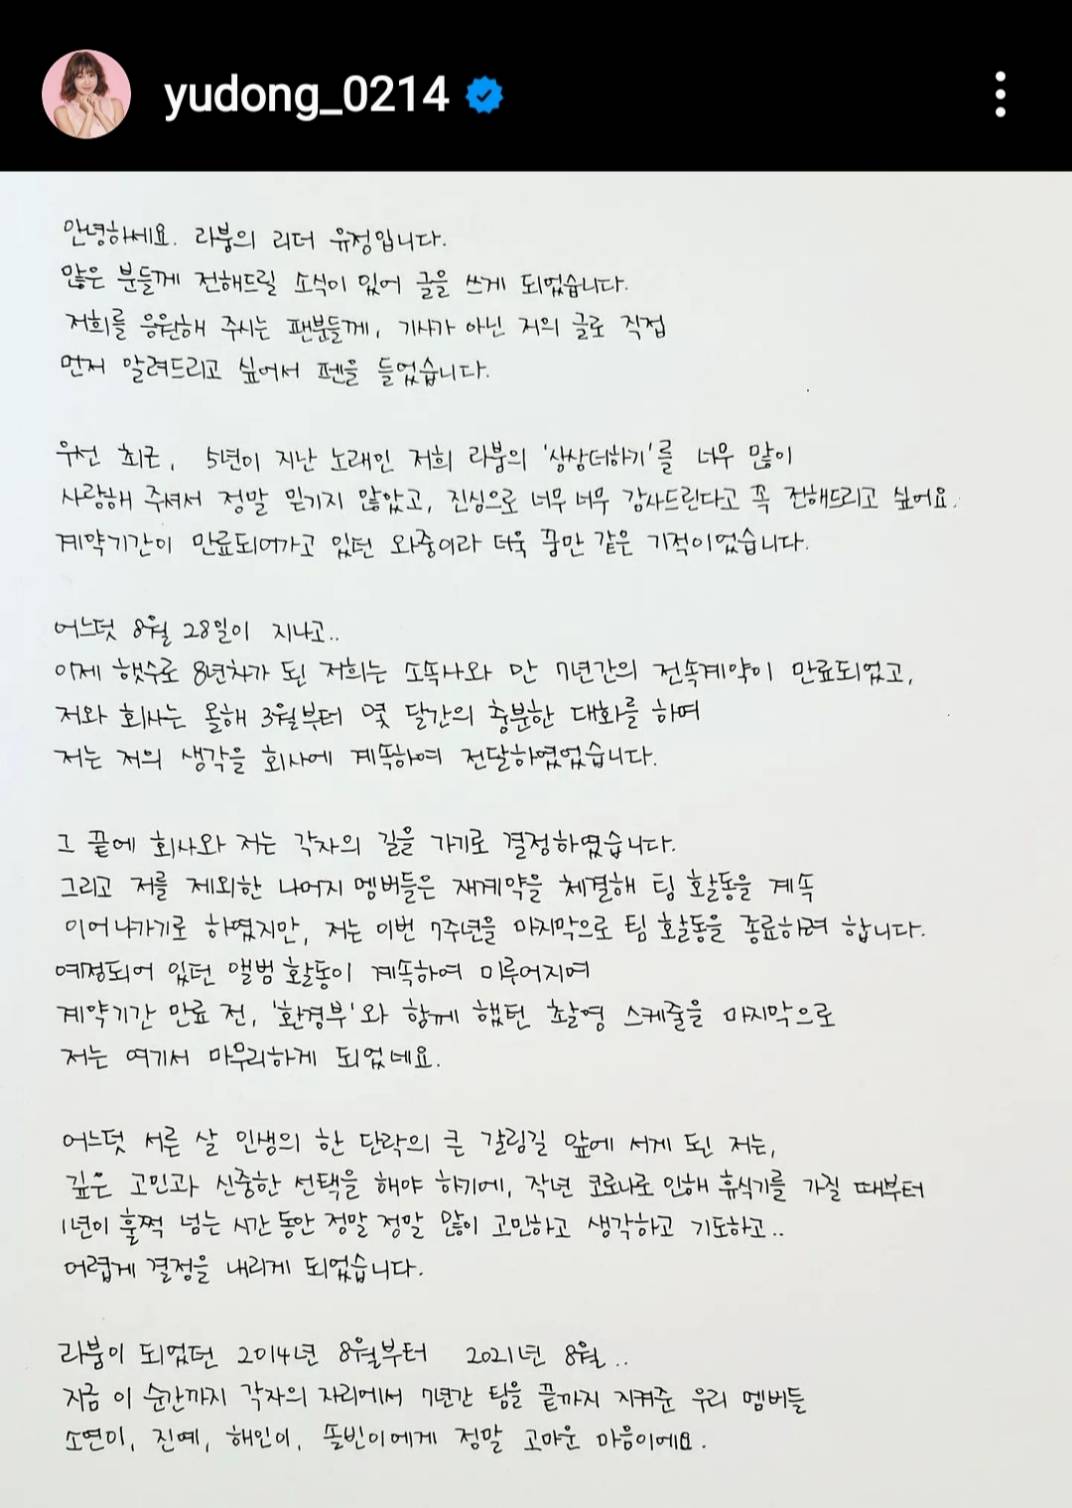 yudong_0214
안녕하세요. 라붐의 리더 유정입니다.
많은 분들께 전해드릴 소식이 있어 글을 쓰게 되었습니다.
저희를 응원해 주시는 팬분들께, 기사가 아닌 저의 글로 직접
먼저 알려드리고 싶어서 펜을 들었습니다.
우선 최근, 5년이 지난 노래인 저희 라붐의 '상상더하기'를 너무 많이
사랑해 주셔서 정말 믿기지 않았고, 진심으로 너무 너무 감사드린다고 꼭 전해드리고 싶어요.
계약기간이 만료되어가고 있던 와중이라 더욱 꿈만 같은 기적이었습니다.
어느덧 8월 28일이 지나고..
이제 햇수로 8년차가 된 저희는 소속사와 만 7년간의 전속계약이 만료되었고,
저와 회사는 올해 3월부터 몇 달간의 충분한 대화를 하며
저는 저의 생각을 회사에 계속하여 전달하였었습니다.
그 끝에 회사와 저는 각자의 길을 가기로 결정하였습니다.
그리고 저를 제외한 나머지 멤버들은 재계약을 체결해 팀 활동을 계속
이어나가기로 하였지만, 저는 이번 7주년을 마지막으로 팀 활동을 종료하려 합니다.
예정되어 있던 앨범 활동이 계속하여 미루어지며
계약기간 만료 전, '환경부'와 함께 했던 촬영 스케줄을 마지막으로
저는 여기서 마무리하게 되었네요.
어느덧 서른 살 인생의 한 단락의 큰 갈림길 앞에 서게 된 저는,
깊은 고민과 신중한 선택을 해야 하기에, 작년 코로나로 인해 휴식기를 가질 때부터
1년이 훌쩍 넘는 시간 동안 정말 정말 많이 고민하고 생각하고 기도하고..
어렵게 결정을 내리게 되었습니다.
라붐이 되었던 2014년 8월부터 2021년 8월..
지금 이 순간까지 각자의 자리에서 7년간 팀을 끝까지 지켜준 우리 멤버들
소연이, 진예, 해인이, 솔빈이에게 정말 고마운 마음이에요.